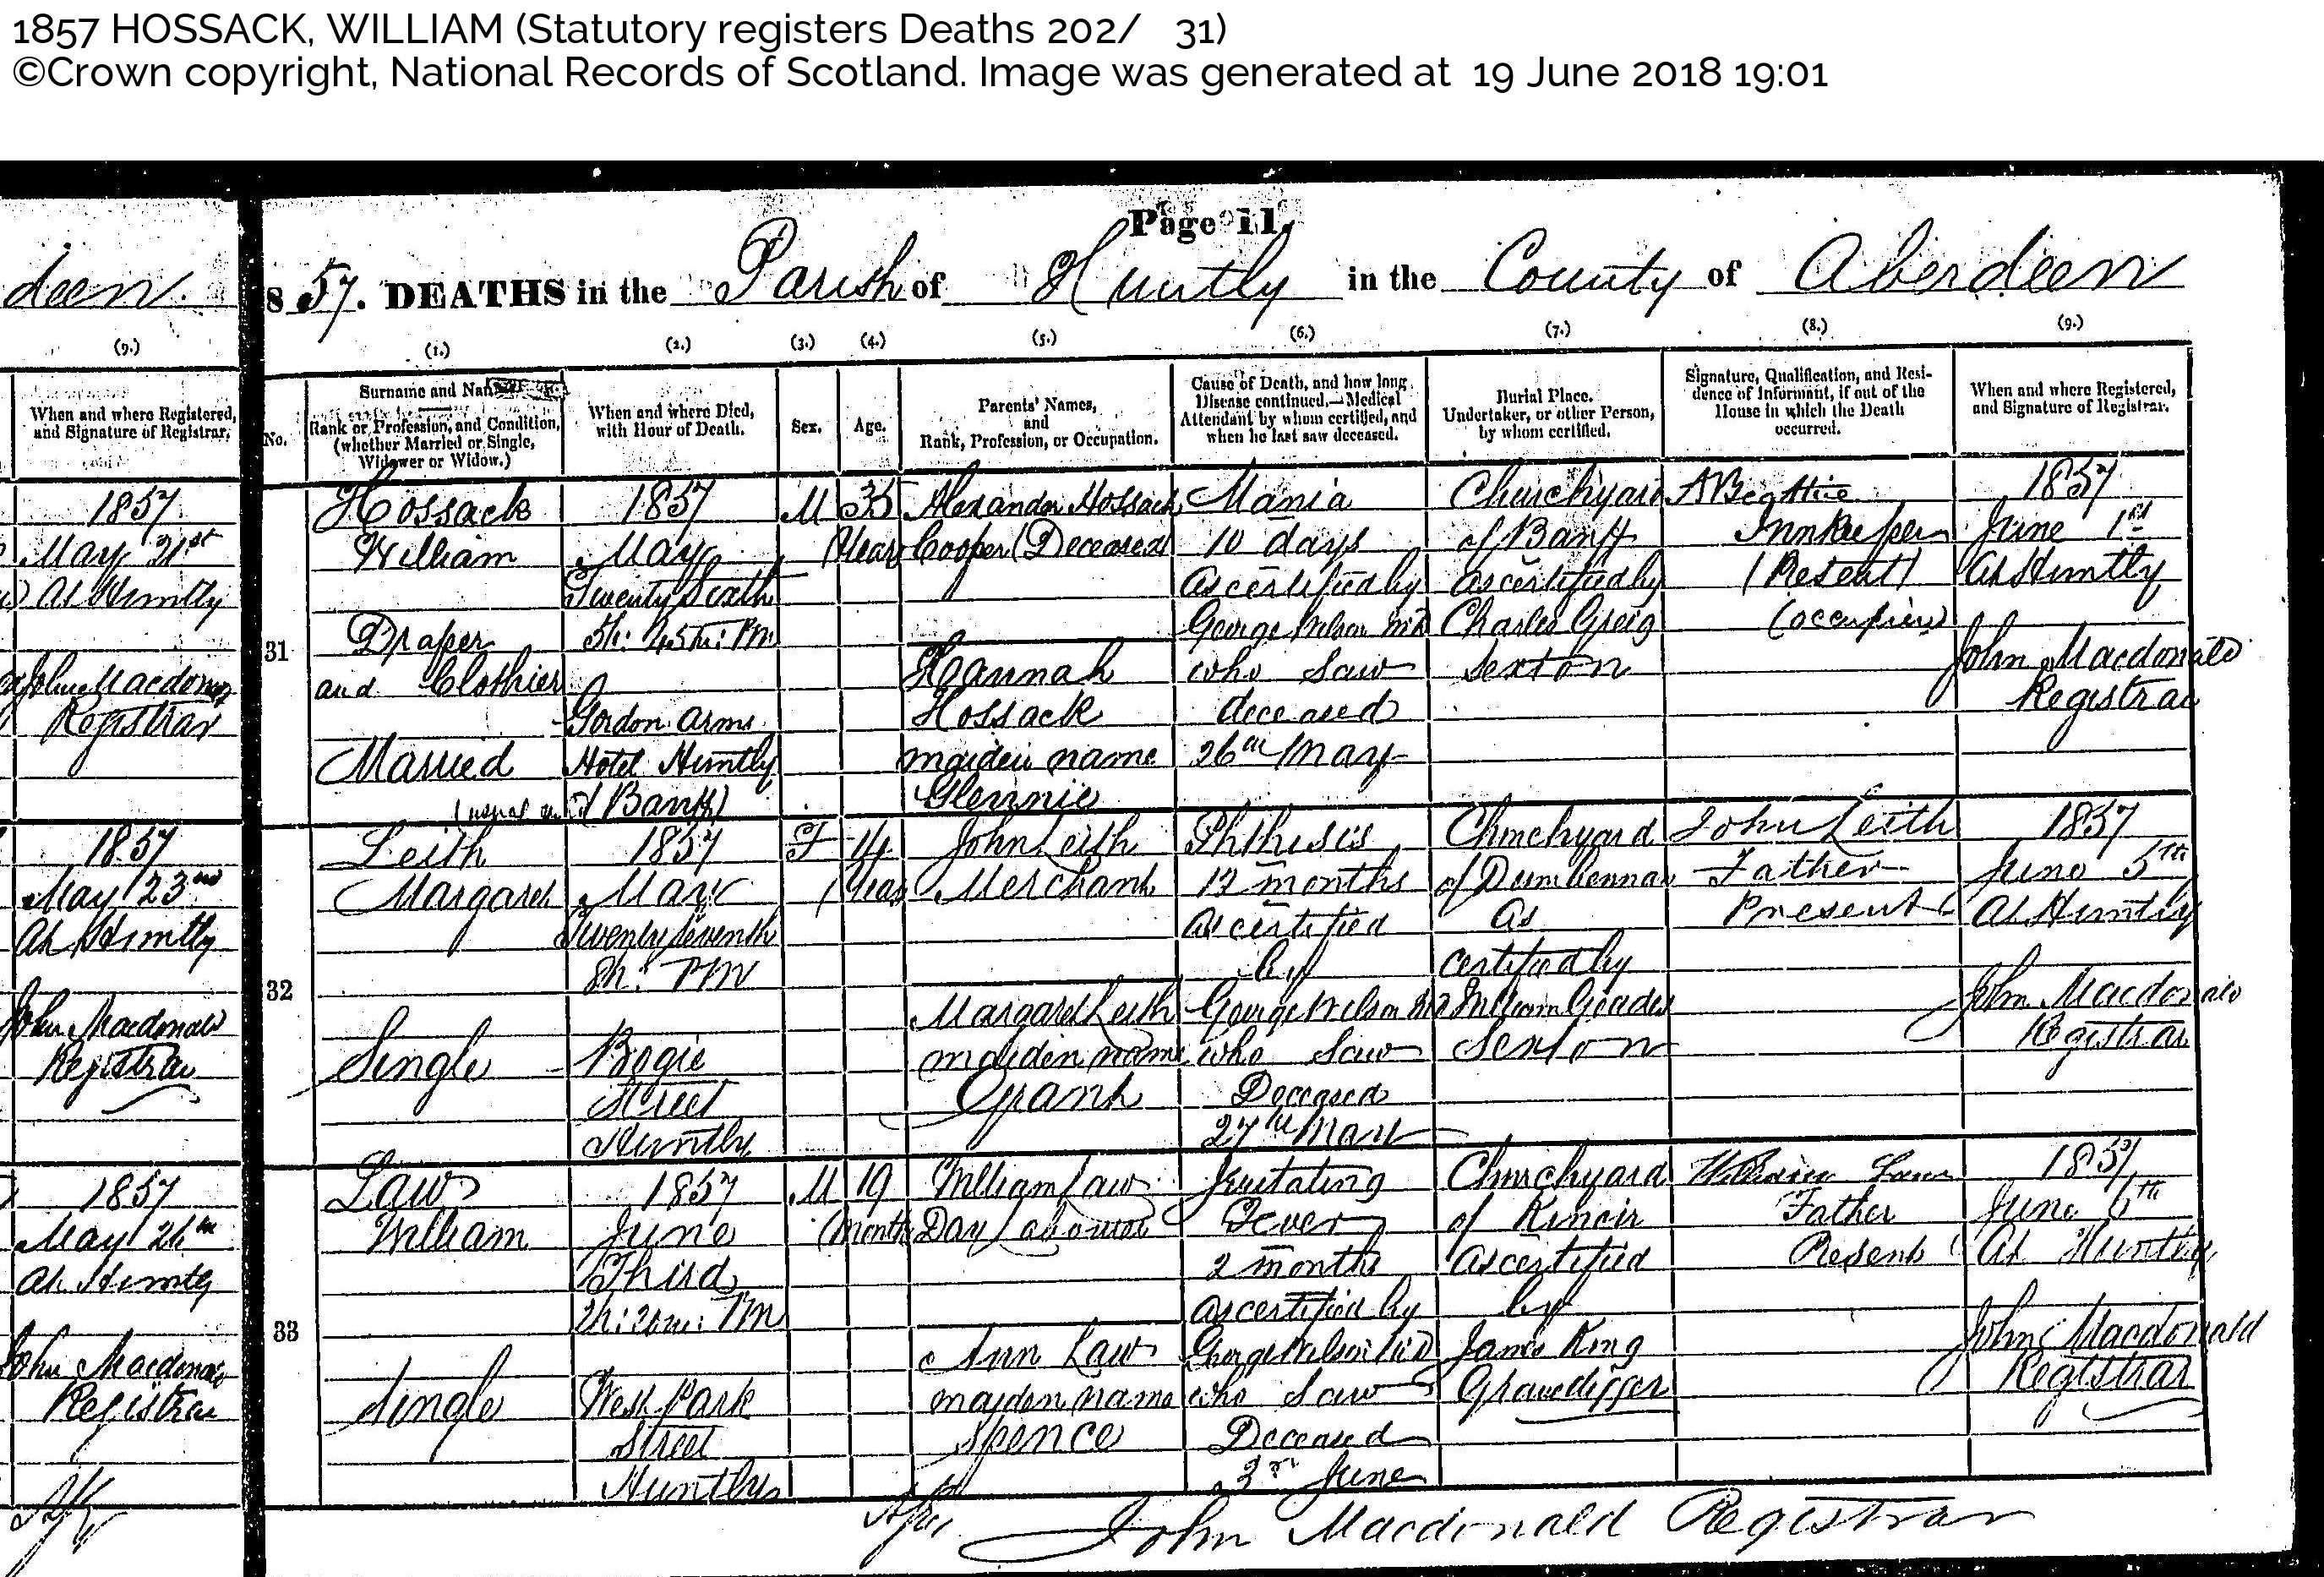 1857 HOSSACK, WILLIAM (Statutory registers Deaths 202/ 31)
©Crown copyright, National Records of Scotland. Image was generated at 19 June 2018 19:01
Page 11.
deen
857. DEATHS in the Parish of Huntly in the County of Aberdeen
(9.)
When and where Registered,
and Signature of Registrar.
1857
May 21st
At Huntly
John Macdonald
Registrar
1857
May 23rd
At Huntly
John Macdonald
Registrar
1857
May 24th
At Huntly
John Macdonald
Registrar
(1.) (2.) (3.) (4.) (5.) (6.) (7.) (8.) (9.)
No.
Surname and Name
Rank or Profession, and Condition,
(whether Married or Single,
Widower or Widow.)
When and where Died,
with Hour of Death.
Sex.
Age.
Parents' Names,
and
Rank, Profession, or Occupation.
Cause of Death, and how long
Disease continued,—Medical
Attendant by whom certified, and
when he last saw deceased.
Burial Place.
Undertaker, or other Person,
by whom certified.
Signature, Qualification, and Resi-
dence of Informant, if out of the
House in which the Death
occurred.
When and where Registered,
and Signature of Registrar.
31
Hossack
William
Draper
and Clothier
Married
1857
May
Twenty Sixth
5h: 45m: PM
Gordon Arms
Hotel Huntly
(usual of Banff)
M
35
Years
Alexander Hossack
Cooper (Deceased)
Hannah
Hossack
maiden name
Glennie
Mania
10 days
As certified by
George Wilson MD
who saw
deceased
26th May
Churchyard
of Banff
as certified by
Charles Greig
Sexton
A Beattie
Innkeeper
(Present)
(occupier)
1857
June 1st
At Huntly
John Macdonald
Registrar
32
Leith
Margaret
Single
1857
May
Twenty Seventh
8h: PM
Bogie
Street
Huntly
F
14
Years
John Leith
Merchant
Margaret Leith
maiden name
Grant
Phthisis
12 months
As certified
by
George Wilson MD
who saw
Deceased
27th May
Churchyard
of Dumbennan
As
certified by
William Geddes
Sexton
John Leith
Father
Present
1857
June 5th
At Huntly
John Macdonald
Registrar
33
Law
William
Single
1857
June
Third
2h: 20m: PM
West Park
Street
Huntly
M
19
Months
William Law
Day Labourer
Ann Law
maiden name
Spence
Irritating
Fever
2 months
as certified by
George Wilson MD
who saw
Deceased
3rd June
Churchyard
of Kinoir
As certified
by
James King
Gravedigger
William Law
Father
Present
1857
June 6th
At Huntly
John Macdonald
Registrar
John Macdonald Registrar